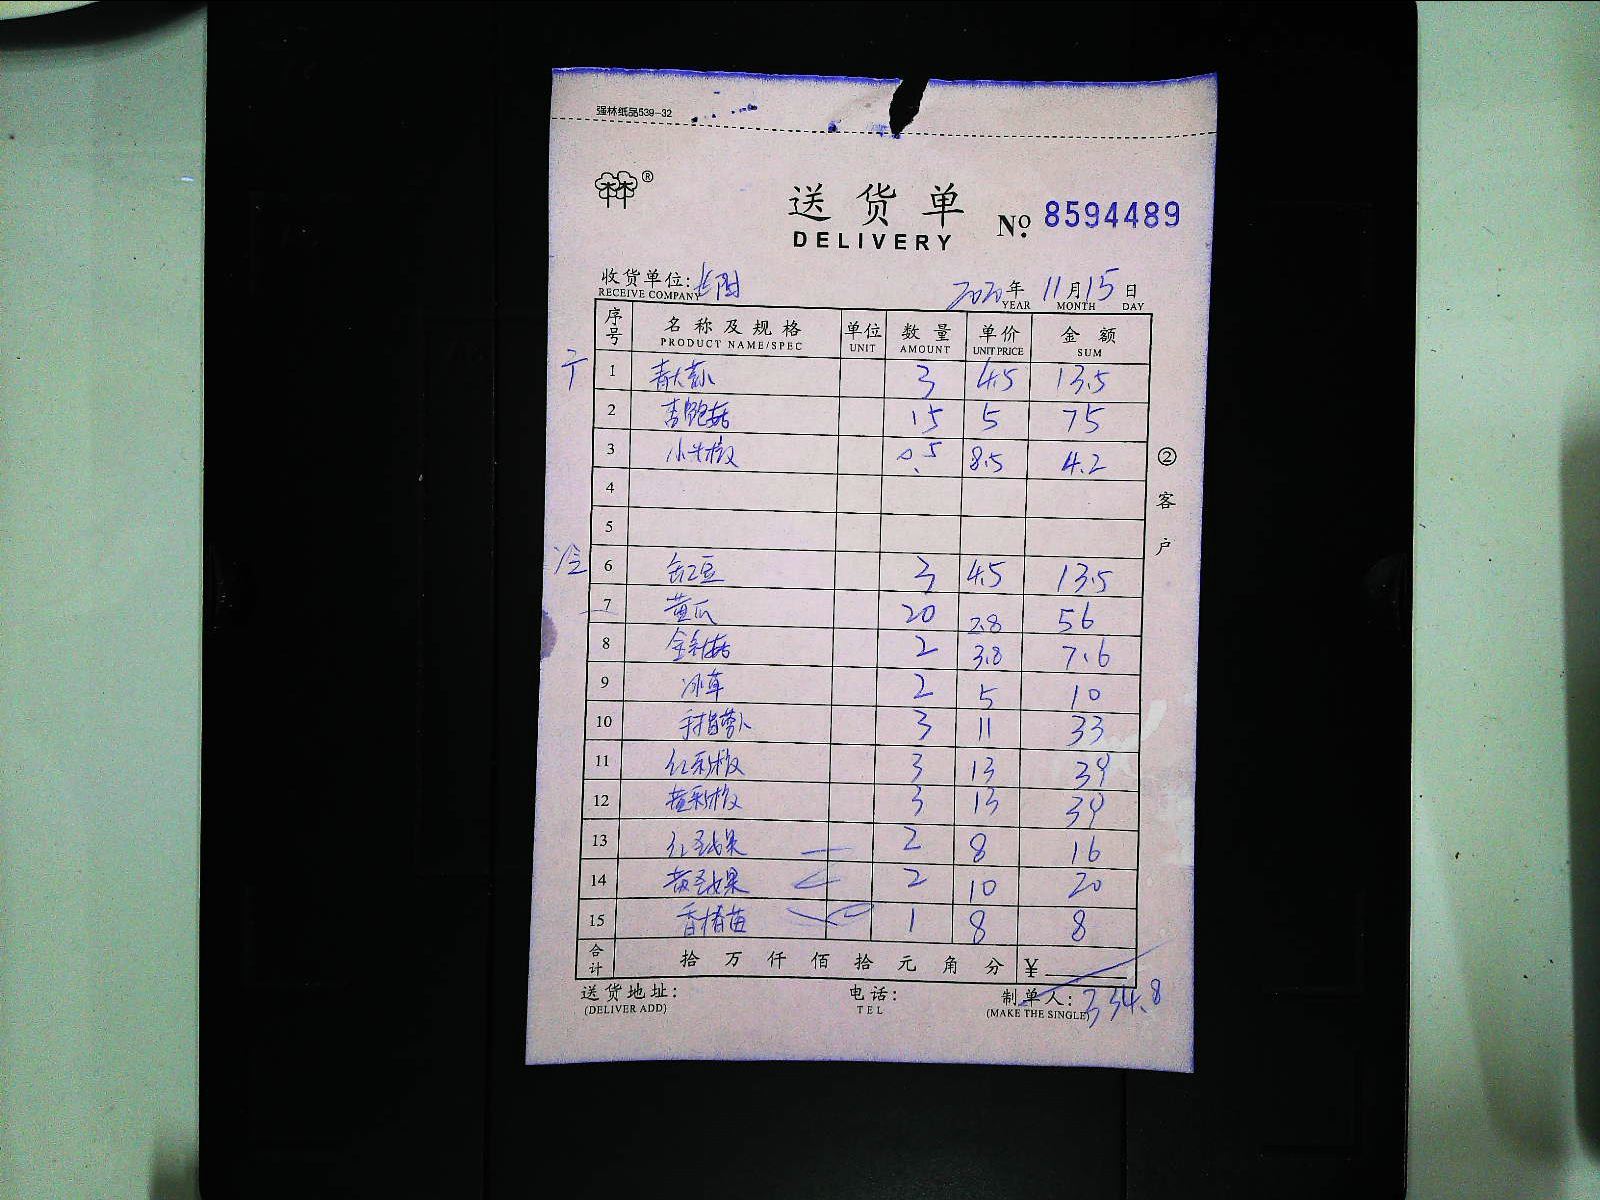 强林纸品539-32
®
送货单
DELIVERY
No. 8594489
收货单位:
RECEIVE COMPANY
2020年 11月15日
YEAR MONTH DAY
序号 名称及规格 单位 数量 单价 金额
PRODUCT NAME/SPEC UNIT AMOUNT UNIT PRICE SUM
1 3 4.5 13.5
2 杏鲍菇 15 5 75
3 小米椒 0.5 8.5 4.2
4
5
冷
6 豇豆 3 4.5 13.5
7 黄瓜 20 2.8 56
8 金针菇 2 3.8 7.6
9 冰草 2 5 10
10 手指萝卜 3 11 33
11 红彩椒 3 13 39
12 黄彩椒 3 13 39
13 红圣女果 2 8 16
14 黄圣女果 2 10 20
15 香椿苗 1 8 8
合计 拾万仟佰拾元角分 ¥
334.8
送货地址: 电话: 制单人:
(DELIVER ADD) TEL (MAKE THE SINGLE)
②客户